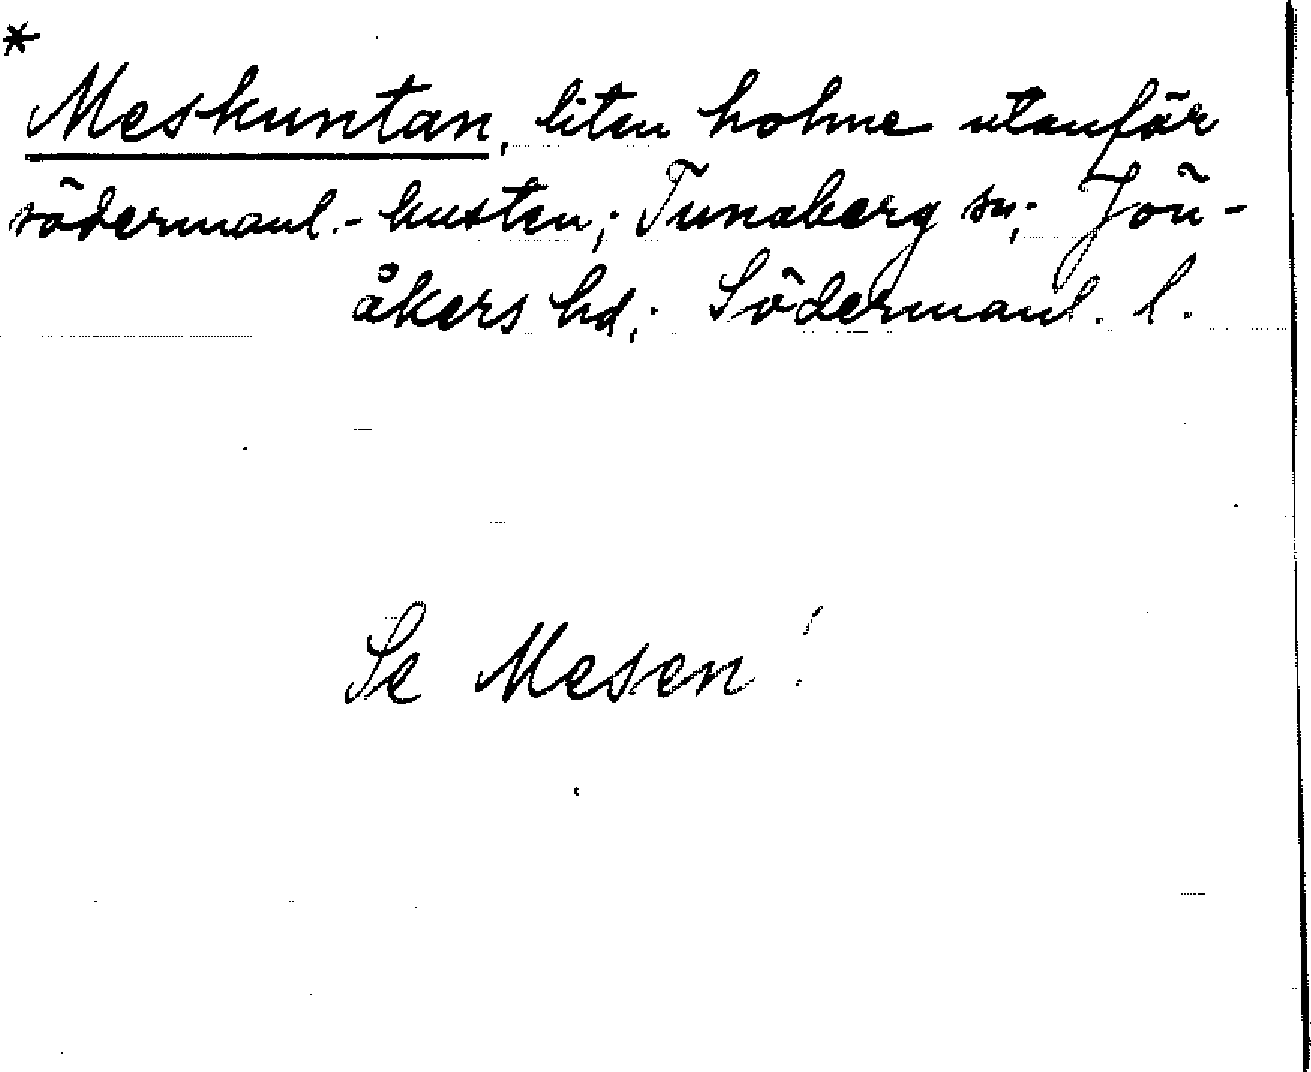 *
Meskuntan, liten holme utanför
södermanl.-kusten; Tunaberg sn; Jön-
åkers hd; Södermanl. l.
Se Mesen!